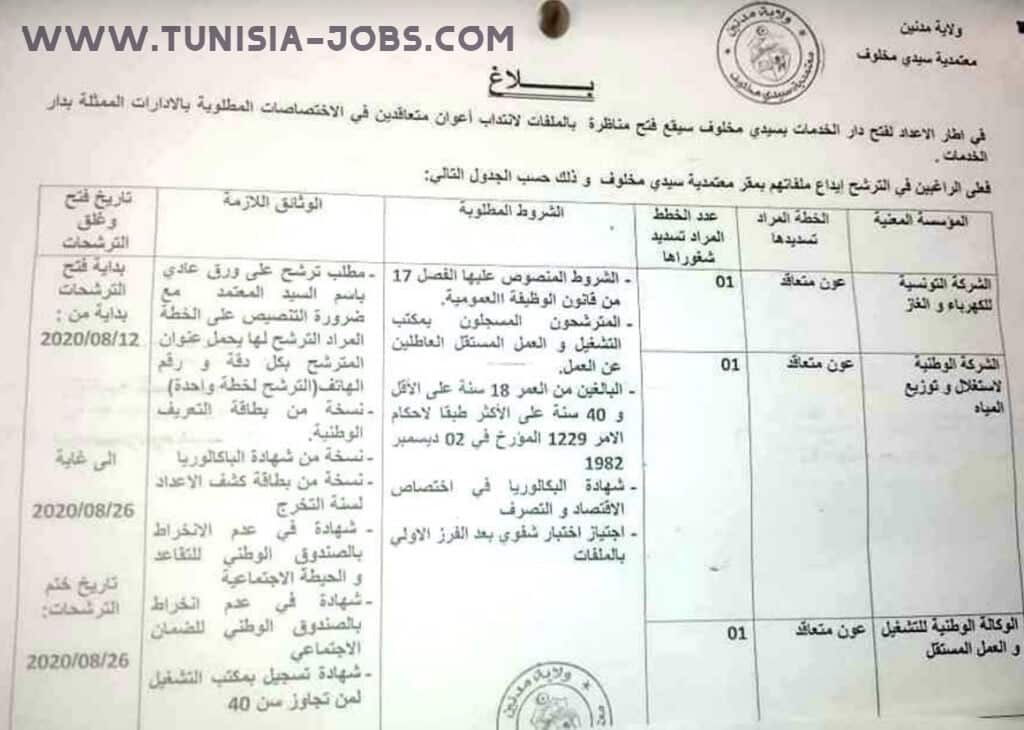 WWW.TUNISIA-JOBS.COM
ولاية مدنين
معتمدية سيدي مخلوف
ولاية مدنين
معتمدية سيدي مخلوف
بـــلاغ
في اطار الاعداد لفتح دار الخدمات بسيدي مخلوف سيقع فتح مناظرة بالملفات لانتداب أعوان متعاقدين في الاختصاصات المطلوبة بالادارات الممثلة بدار
الخدمات .
فعلى الراغبين في الترشح إيداع ملفاتهم بمقر معتمدية سيدي مخلوف و ذلك حسب الجدول التالي:
المؤسسة المعنية
الخطة المراد
تسديدها
عدد الخطط
المراد تسديد
شغوراها
الشروط المطلوبة
الوثائق اللازمة
تاريخ فتح
وغلق
الترشحات
الشركة التونسية
للكهرباء و الغاز
عون متعاقد
01
الشركة الوطنية
لاستغلال و توزيع
المياه
عون متعاقد
01
الوكالة الوطنية للتشغيل
و العمل المستقل
عون متعاقد
01
- الشروط المنصوص عليها الفصل 17
من قانون الوظيفة االعمومية.
- المترشحون المسجلون بمكتب
التشغيل و العمل المستقل العاطلين
عن العمل.
- البالغين من العمر 18 سنة على الأقل
و 40 سنة على الأكثر طبقا لاحكام
الامر 1229 المؤرخ في 02 ديسمبر
1982
- شهادة البكالوريا في اختصاص
الاقتصاد و التصرف
- اجتياز اختبار شفوي بعد الفرز الاولي
بالملفات
- مطلب ترشح على ورق عادي
باسم السيد المعتمد مع
ضرورة التنصيص على الخطة
المراد الترشح لها يحمل عنوان
المترشح بكل دقة و رقم
الهاتف(الترشح لخطة واحدة)
- نسخة من بطاقة التعريف
الوطنية.
- نسخة من شهادة الباكالوريا
- نسخة من بطاقة كشف الاعداد
لسنة التخرج
- شهادة في عدم الانخراط
بالصندوق الوطني للتقاعد
و الحيطة الاجتماعية
- شهادة في عدم انخراط
بالصندوق الوطني للضمان
الاجتماعي
- شهادة تسجيل بمكتب التشغيل
لمن تجاوز سن 40
بداية فتح
الترشحات
بداية من :
2020/08/12
الى غاية
2020/08/26
تاريخ ختم
الترشحات:
2020/08/26
ولاية مدنين